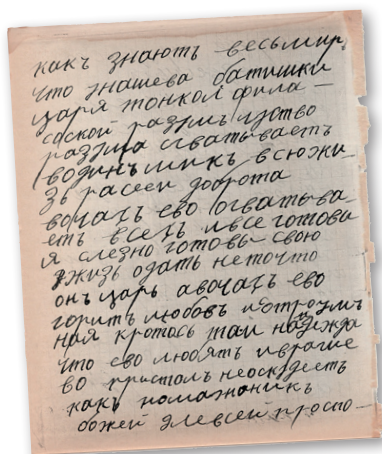 какъ знаютъ весьмир
что унашева батишки
царя тонкой фила-
совской разумъ чуство
разума охватываетъ
водинъ микъ всюжи-
зь расеи доброта
вочахъ ево охватыва-
етъ всехъ ивсе готовы
я слезно готовъ свою
жизь одать неточто
онъ царь авочахъ ево
горитъ любовъ иостроумъ
ная кротось там надежда
что ево любятъ ивраги
во пристолъ неоскудеетъ
какъ помазаникъ
божей длевсей просто-